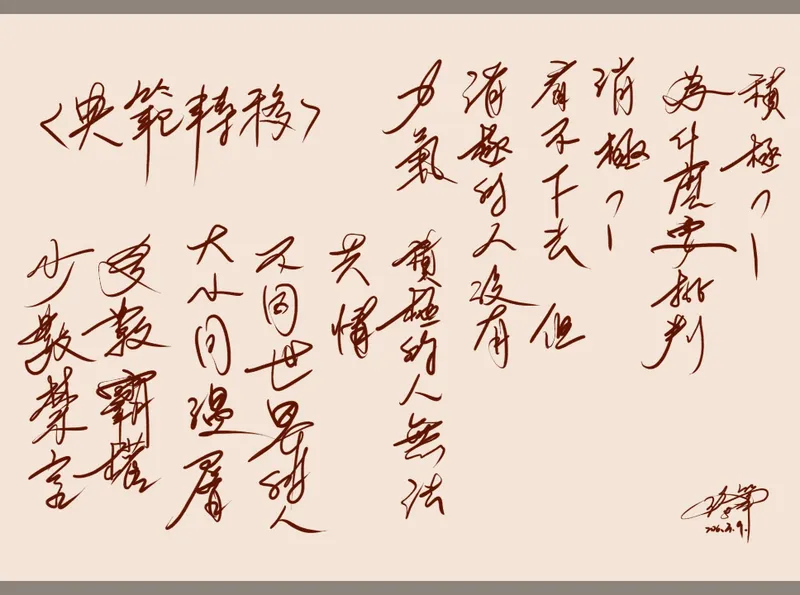 〈典範轉移〉
積極
為什麼要批判
消極
看不下去 但
消極的人沒有
力氣
積極的人無法
共情
不同世界的人
大小同溫層
多數霸權
少數禁